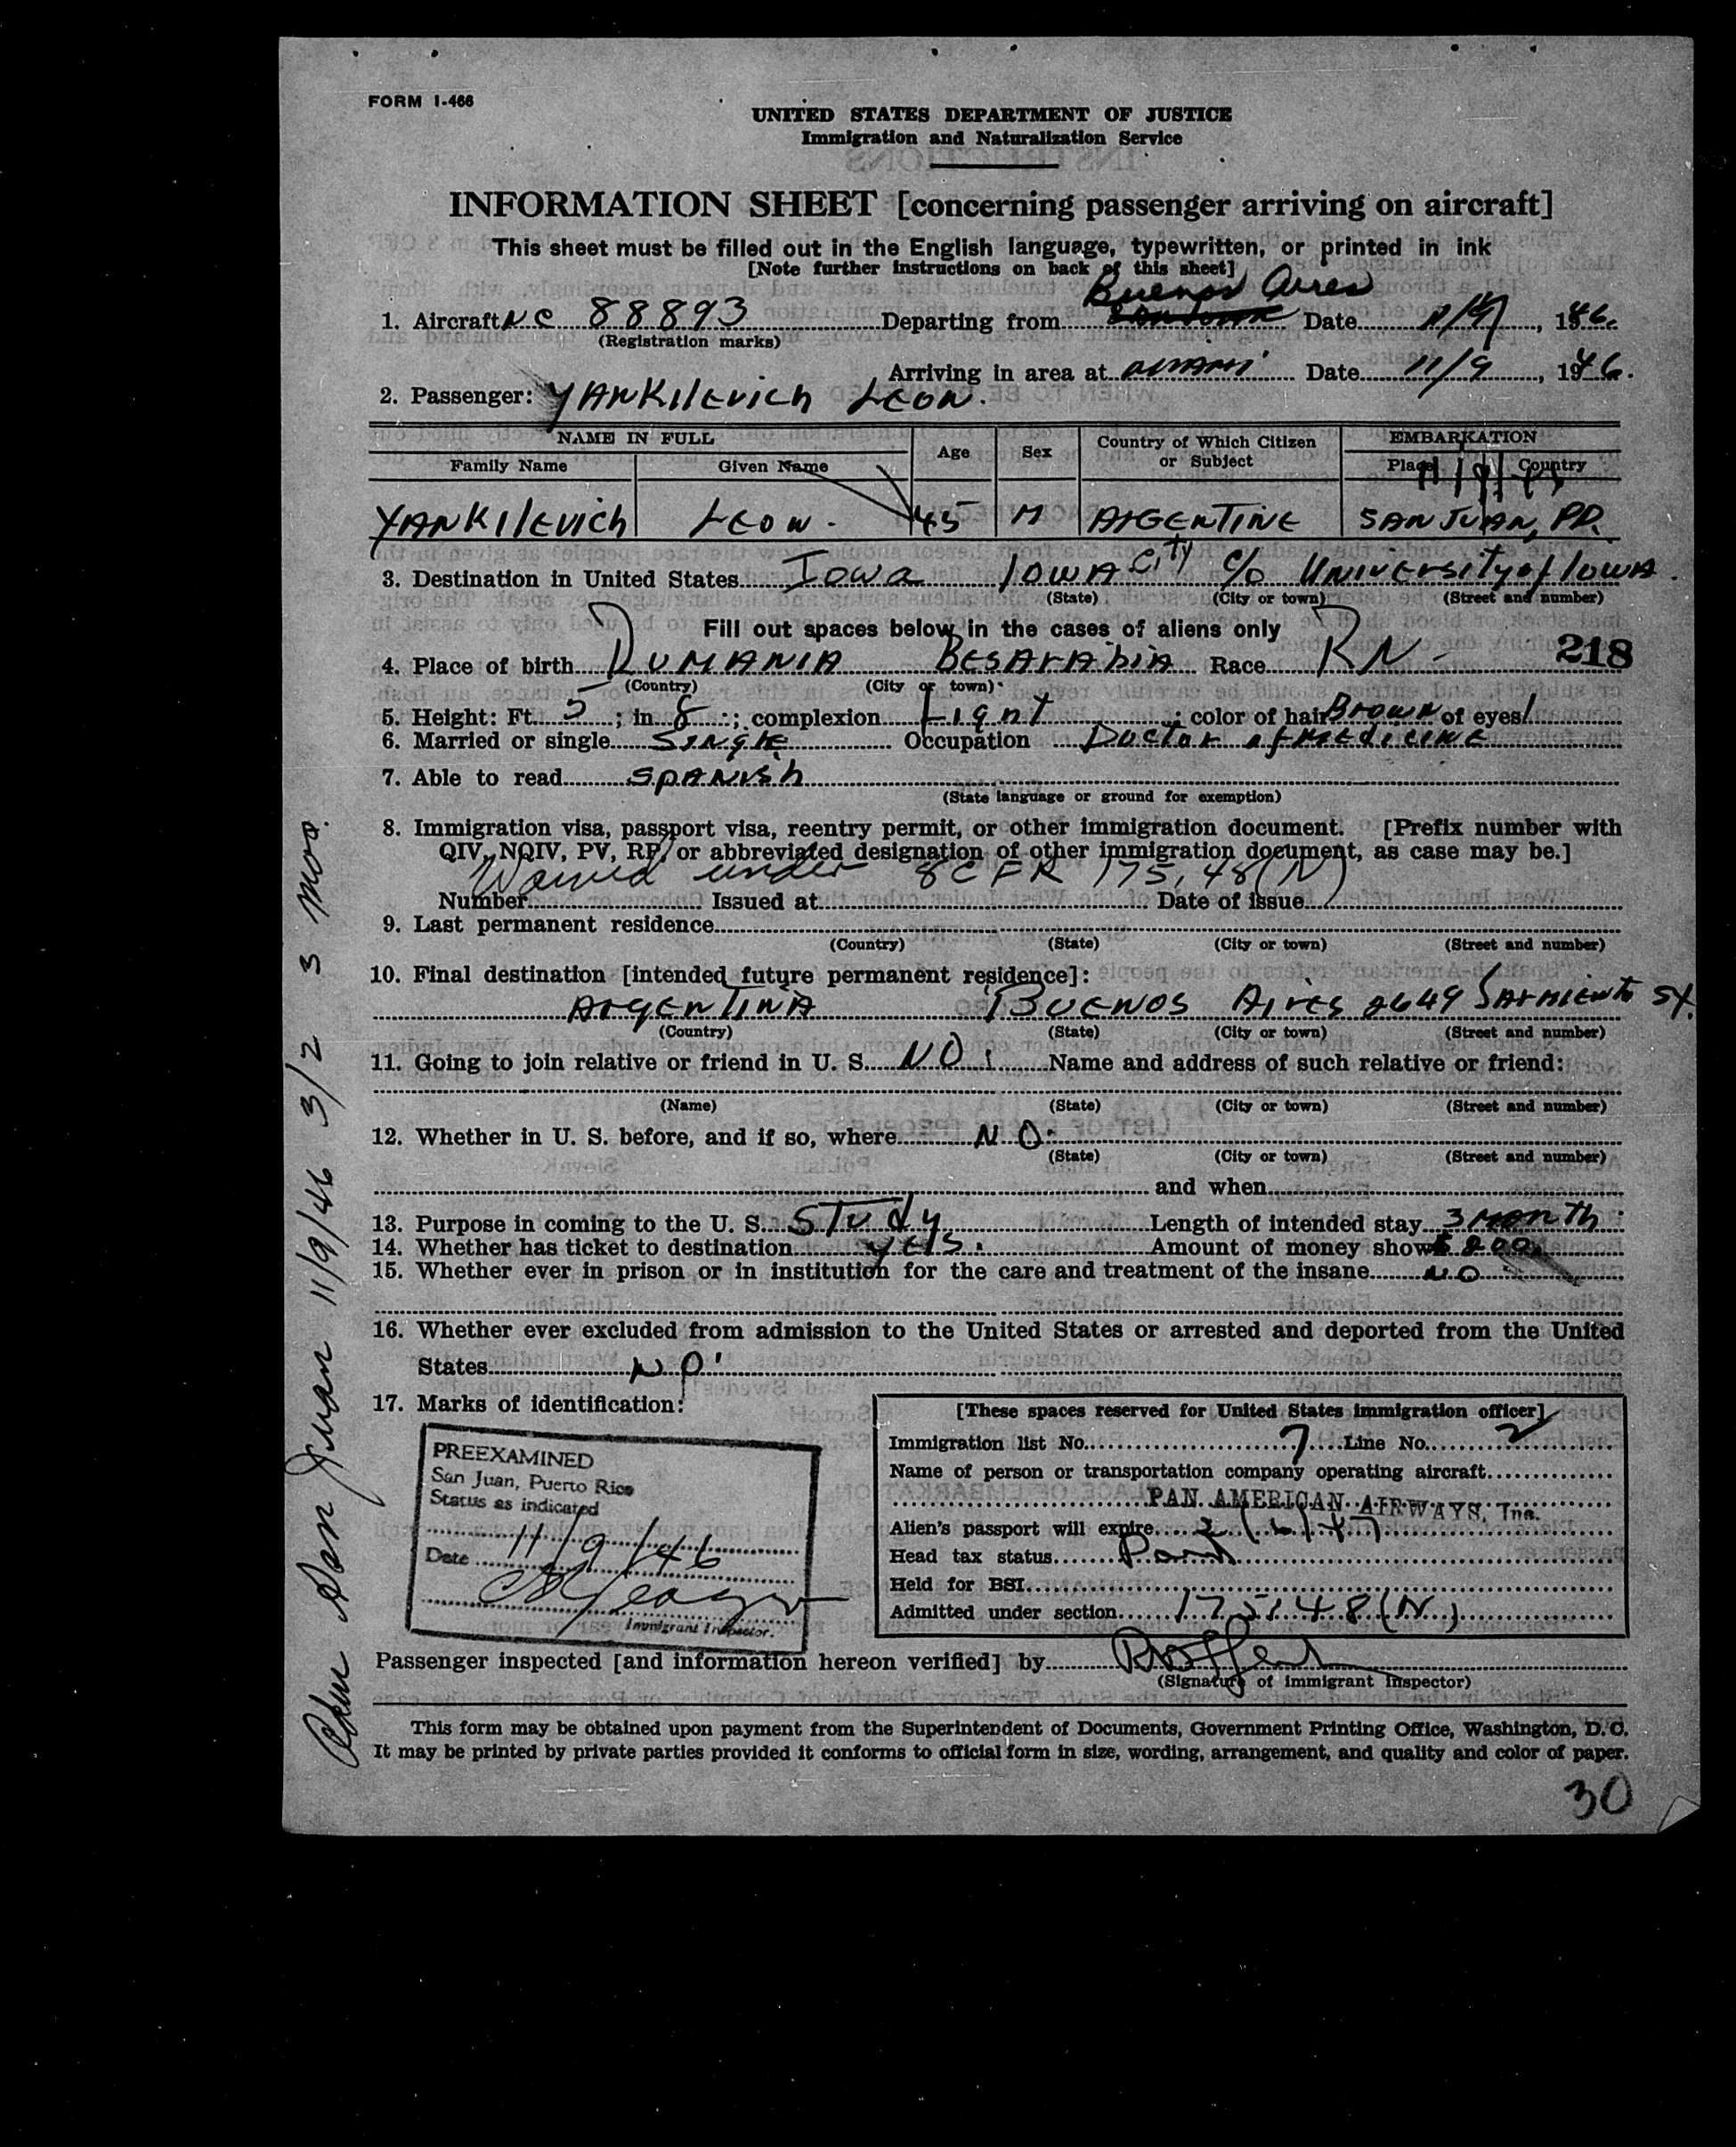 FORM I-466
UNITED STATES DEPARTMENT OF JUSTICE
Immigration and Naturalization Service
INFORMATION SHEET [concerning passenger arriving on aircraft]
This sheet must be filled out in the English language, typewritten, or printed in ink
[Note further instructions on back of this sheet]
Buenos Aires
1. Aircraft NC 88893 Departing from Date 11/9, 1946.
(Registration marks)
Arriving in area at Miami Date 11/9, 1946.
2. Passenger: YANKILEVICH LEON.
NAME IN FULL Age Sex Country of Which Citizen or Subject EMBARKATION
Family Name Given Name Place Country
YANKILEVICH LEON. 45 M ARGENTINE SAN JUAN, P.R.
3. Destination in United States Iowa IOWA CITY c/o UNIVERSITY of IOWA.
(State) (City or town) (Street and number)
Fill out spaces below in the cases of aliens only
4. Place of birth RUMANIA BESARABIA Race RN - 218
(Country) (City or town)
5. Height: Ft. 5; in 8; complexion Light; color of hair Brown of eyes
6. Married or single Single Occupation Doctor of Medicine
7. Able to read SPANISH
(State language or ground for exemption)
8. Immigration visa, passport visa, reentry permit, or other immigration document. [Prefix number with
QIV, NQIV, PV, RP, or abbreviated designation of other immigration document, as case may be.]
Waived under 8 CFR 175.48(N)
Number Issued at Date of issue
9. Last permanent residence
(Country) (State) (City or town) (Street and number)
10. Final destination [intended future permanent residence]:
ARGENTINA BUENOS AIRES 2649 SARMIENTO ST.
(Country) (State) (City or town) (Street and number)
11. Going to join relative or friend in U. S. NO. Name and address of such relative or friend:
(Name) (State) (City or town) (Street and number)
12. Whether in U. S. before, and if so, where NO.
(State) (City or town) (Street and number)
and when
13. Purpose in coming to the U. S. STUDY Length of intended stay 3 MONTH
14. Whether has ticket to destination yes. Amount of money show $ 800
15. Whether ever in prison or in institution for the care and treatment of the insane NO
16. Whether ever excluded from admission to the United States or arrested and deported from the United
States NO
17. Marks of identification:
PREEXAMINED
San Juan, Puerto Rico
Status as indicated
Date 11/9/46
Immigrant Inspector.
[These spaces reserved for United States immigration officer]
Immigration list No. 7 Line No. 2
Name of person or transportation company operating aircraft
PAN AMERICAN AIRWAYS, Inc.
Alien's passport will expire 2/6/47
Head tax status Paid
Held for BSI
Admitted under section 175.48(N)
Passenger inspected [and information hereon verified] by
(Signature of immigrant inspector)
This form may be obtained upon payment from the Superintendent of Documents, Government Printing Office, Washington, D. C.
It may be printed by private parties provided it conforms to official form in size, wording, arrangement, and quality and color of paper.
30
San Juan 11/9/46 3/2 3 mos.